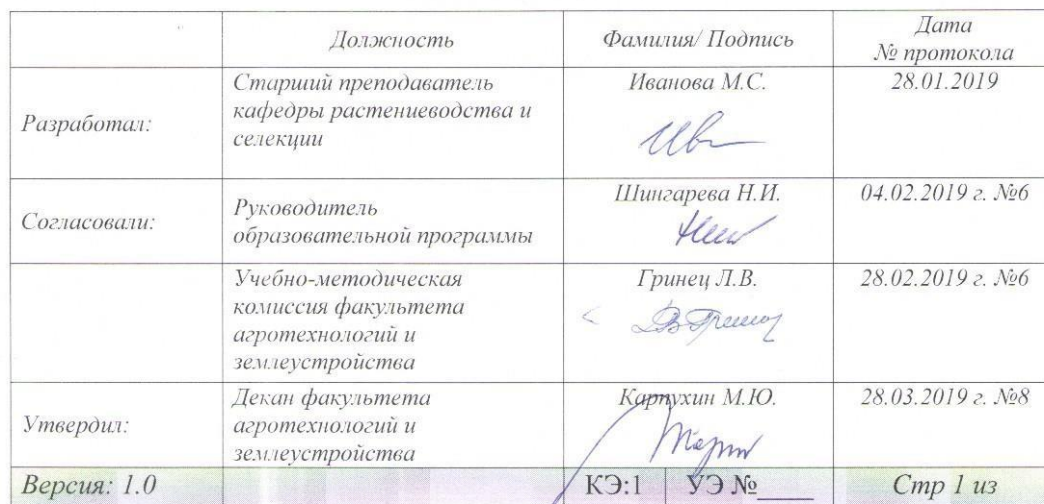 Должность Фамилия/ Подпись Дата
№ протокола
Разработал: Старший преподаватель
кафедры растениеводства и
селекции
Иванова М.С. 28.01.2019
Согласовали: Руководитель
образовательной программы
Шингарева Н.И. 04.02.2019 г. №6
Учебно-методическая
комиссия факультета
агротехнологий и
землеустройства
Гринец Л.В. 28.02.2019 г. №6
Утвердил: Декан факультета
агротехнологий и
землеустройства
Карпухин М.Ю. 28.03.2019 г. №8
Версия: 1.0 КЭ:1 УЭ №____ Стр 1 из